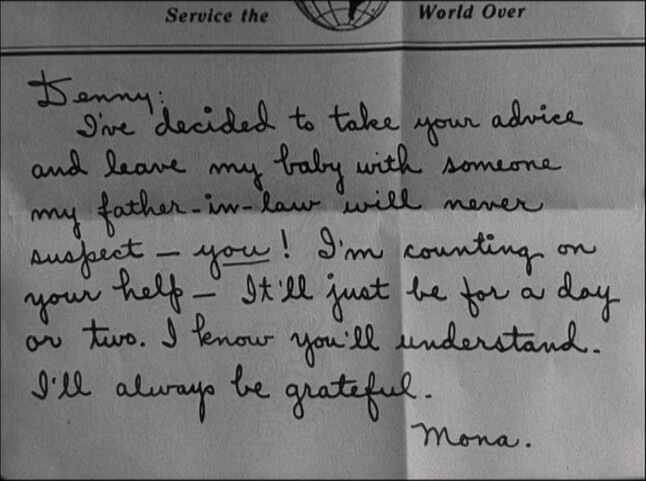 Service the World Over
Denny:
I've decided to take your advice
and leave my baby with someone
my father-in-law will never
suspect — you! I'm counting on
your help — It'll just be for a day
or two. I know you'll understand.
I'll always be grateful.
Mona.